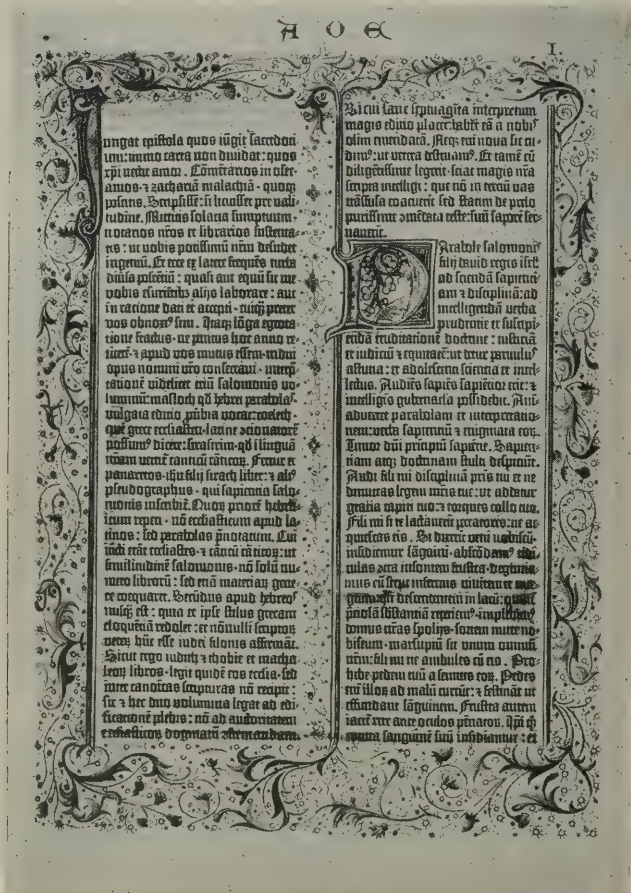 A O E
I.
Iungat epistola quos iūgit sacerdoci-
um: immo carta non diuidat: quos
xp̄i nectit amor. Cōmētarios in osee
amos ⁊ zachariā malachiā · quoqꝫ
poscitis. Scripsissē: si licuisset pre vali-
tudine. Mittitis solacia sumptuum ·
notarios nr̄os et librarios sustenta-
tis: ut vobis potissimū nr̄m desudet
ingeniū. Et ecce ex latere frequēs turba
diūsa poscētiū: quasi aut equū sit me
vobis esuriētibꝫ alijs laborare: aut
in ratione dati et accepti · cuiqꝫ preter
vos obnoxiꝰ sim. Itaqꝫ lōga egrota-
tione fractus · ne penitus hoc anno re-
ticerē · ⁊ apud vos mutus essem · tridui
opus nomini vr̄o consecraui · interp̄-
tationē videlicet triū salomonis vo-
luminū: masloth qd̄ hebrei parabolas
vulgata editio pūbia vocat: coeleth ·
quē grece ecclesiasten · latine cōcionatorē
possumꝰ dicere: sirasirim · qd̄ ī linguā
nr̄am vertit᷑ canticū cāticoꝝ. Fertur et
panaretos · ih̄u filij sirach liber: ⁊ aliꝰ
pseudographus · qui sapientia salo-
monis inscribit᷑. Quoꝝ priorē hebra-
icum reperi · nō ecclesiasticum apud la-
tinos: sed parabolas p̄notatum. Cui
iūcti erāt ecclesiastes · ⁊ cāticū cāticoꝝ: ut
similitudinē salomonis · nō solū nu-
mero librorū: sed etiā materiaꝝ gene-
re coequaret. Secūdus apud hebreos
nusqꝫ est: quia et ipse stilus grecam
eloquētiā redolet: et nōnulli scriptoꝝ
veteꝝ hūc esse iudei filonis affirmāt.
Sicut ergo iudith ⁊ thobie et macha-
beoꝝ libros · legit quidē eos ecclesia · sed
inter canōicas scripturas nō recipit:
sic ⁊ hec duo volumina legat ad edi-
ficationē plebis: nō ad auctoritatem
ecclesiasticoꝝ dogmatū cōfirmandam.
Si cui sane septuagīta interpretum
magis editio placet: habet eā a nobis
olim emēdatā. Neqꝫ enī noua sic cu-
dimꝰ: ut vetera destruamꝰ. Et tamē cū
diligētissime legerit · sciat magis nr̄a
scripta intelligi: que nō in terciū vas
trāssusa coacuerit: sed statim de prelo
purissime ōmēdata teste: suū saporē ser-
uauerīt.
Parabole salomonis
filij dauid regis isrl̄:
ad sciendā sapienti-
am ⁊ disciplinā: ad
intelligendā verba
prudentie et suscipi-
endā eruditationē doctrine: iusticiā
et iudiciū ⁊ equitatē: ut detur paruulis
astutia: et adolescēti scientia et intel-
lectus. Audiēs sapiēs sapiētior erit: ⁊
intelligēs gubernacla possidebit. Ani-
aduertet parabolam et interpretatio-
nem: verba sapientiū ⁊ enigmata eoꝝ.
Timor dn̄i principiū sapiētie. Sapien-
tiam atqꝫ doctrinam stulti despiciūt.
Audi fili mi disciplinā pr̄is tui et ne
dimittas legem mr̄is tue: ut addatur
gratia capiti tuo: ⁊ torques collo tuo.
Fili mi si te lactauerīt peccatores: ne ac-
quiescas eis. Si dixerīt veni nobiscū ·
insidiemur sāguini · abscōdamꝰ tēdi-
culas cōtra insontem frustra · deglutia-
mus eū sicut infernus viuētem et inte-
grum · quasi descendentem in lacū: omnē
p̄ciosā sb̄stantiā reperiemꝰ · implebimꝰ
domus nr̄as spolijs · sortem mitte no-
biscum · marsupiū sit unum omniū
nr̄m: fili mi ne ambules cū eis. Pro-
hibe pedem tuū a semitis eoꝝ. Pedes
enī illoꝝ ad malū currūt: ⁊ festināt ut
effundant sāguinem. Frustra autem
iacit᷑ rete ante oculos pēnatoꝝ. Ip̄i qꝫ
contra sanguinē suū insidiantur: et